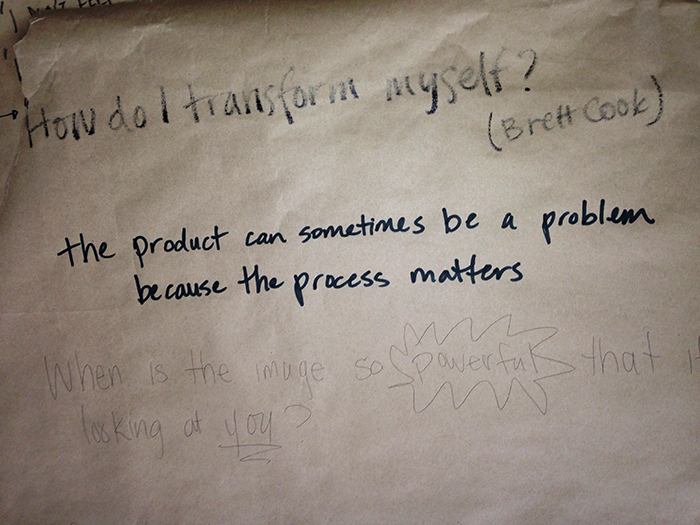 How do I transform myself?
(Brett Cook)
the product can sometimes be a problem
because the process matters
When is the image so powerful that
looking at you?